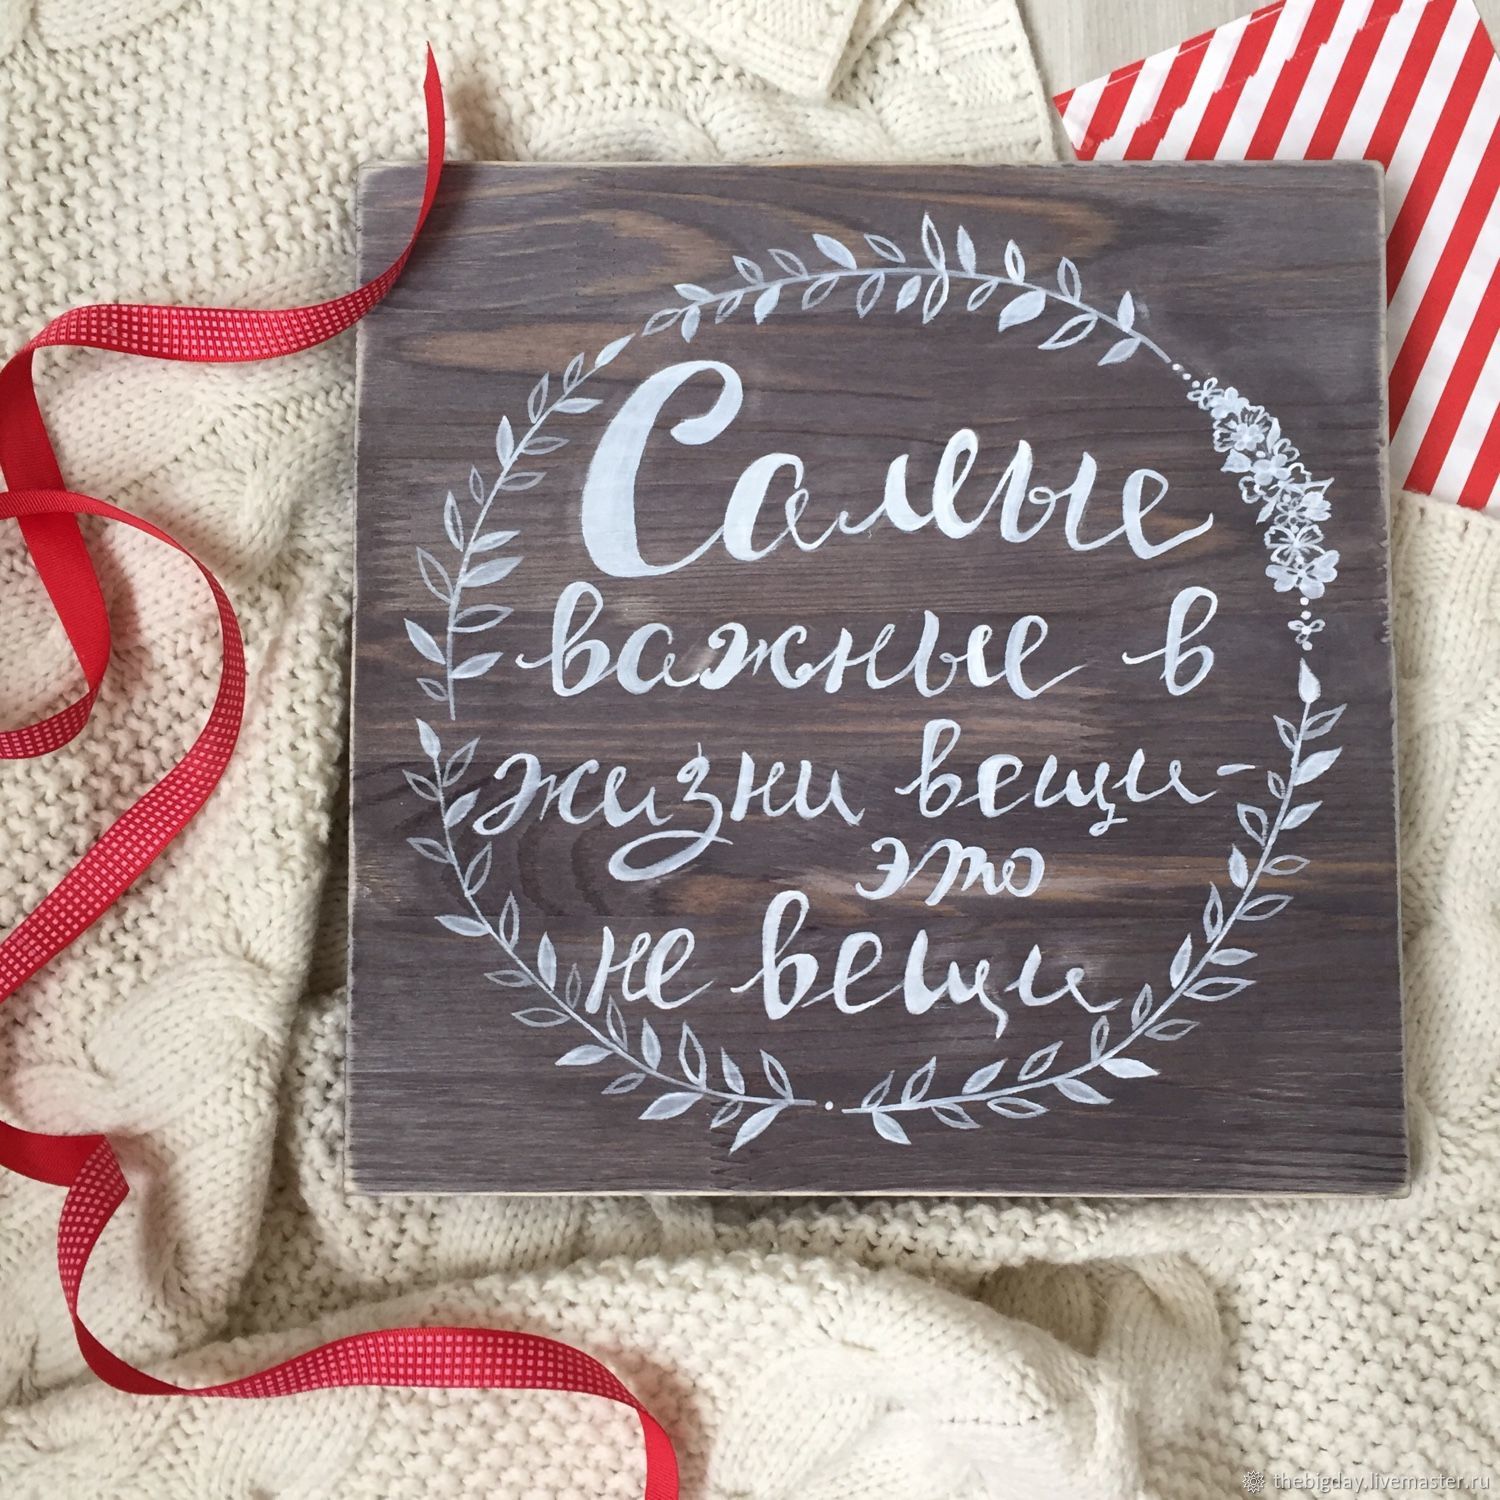 Самые
важные в
жизни вещи-
это
не вещи
thebigday.livemaster.ru